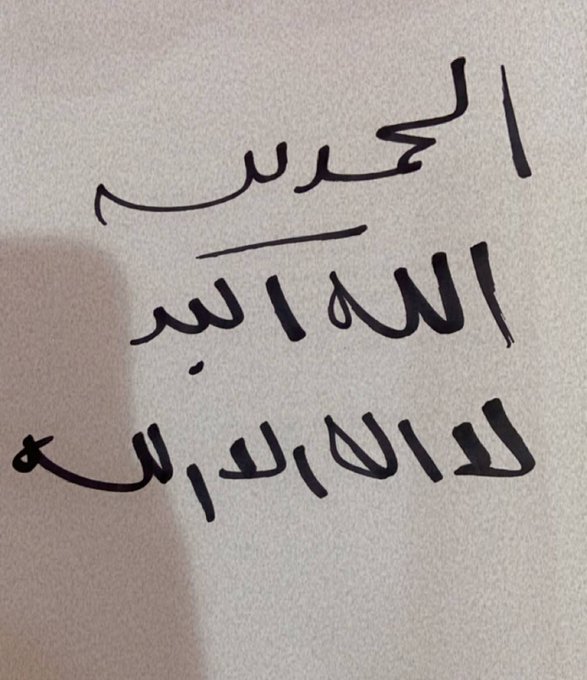 الحمد لله
الله اكبر
لا اله الا الله